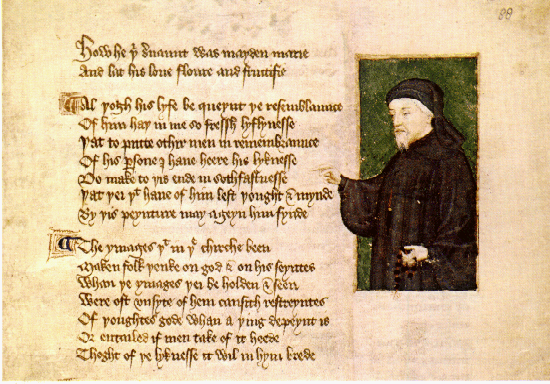 88
How he þͥ ẜuaunt was mayden marie
And lat his loue floure and fructifie
Al þogh his lyfe be queynt þe resemblaunce
Of him haþ in me so fressh lyflynesse
Þat to putte othir men in remembraunce
Of his ꝑsone I haue heere his lyknesse
Do make to þis ende in sothfastnesse
Þat þei þᵗ haue of him lest þought & mynde
By þis peynture may ageyn him fynde
The ymages þᵗ in þᵉ chirche been
Maken folk þenke on god & on his seyntes
Whan þe ymages þei be holden & seen
Were oft vnsyte of hem causith restreyntes
Of þoughtes gode whan a þing depeynt is
Or entailed if men take of it heede
Thoght of þe lyknesse it wil in hym brede